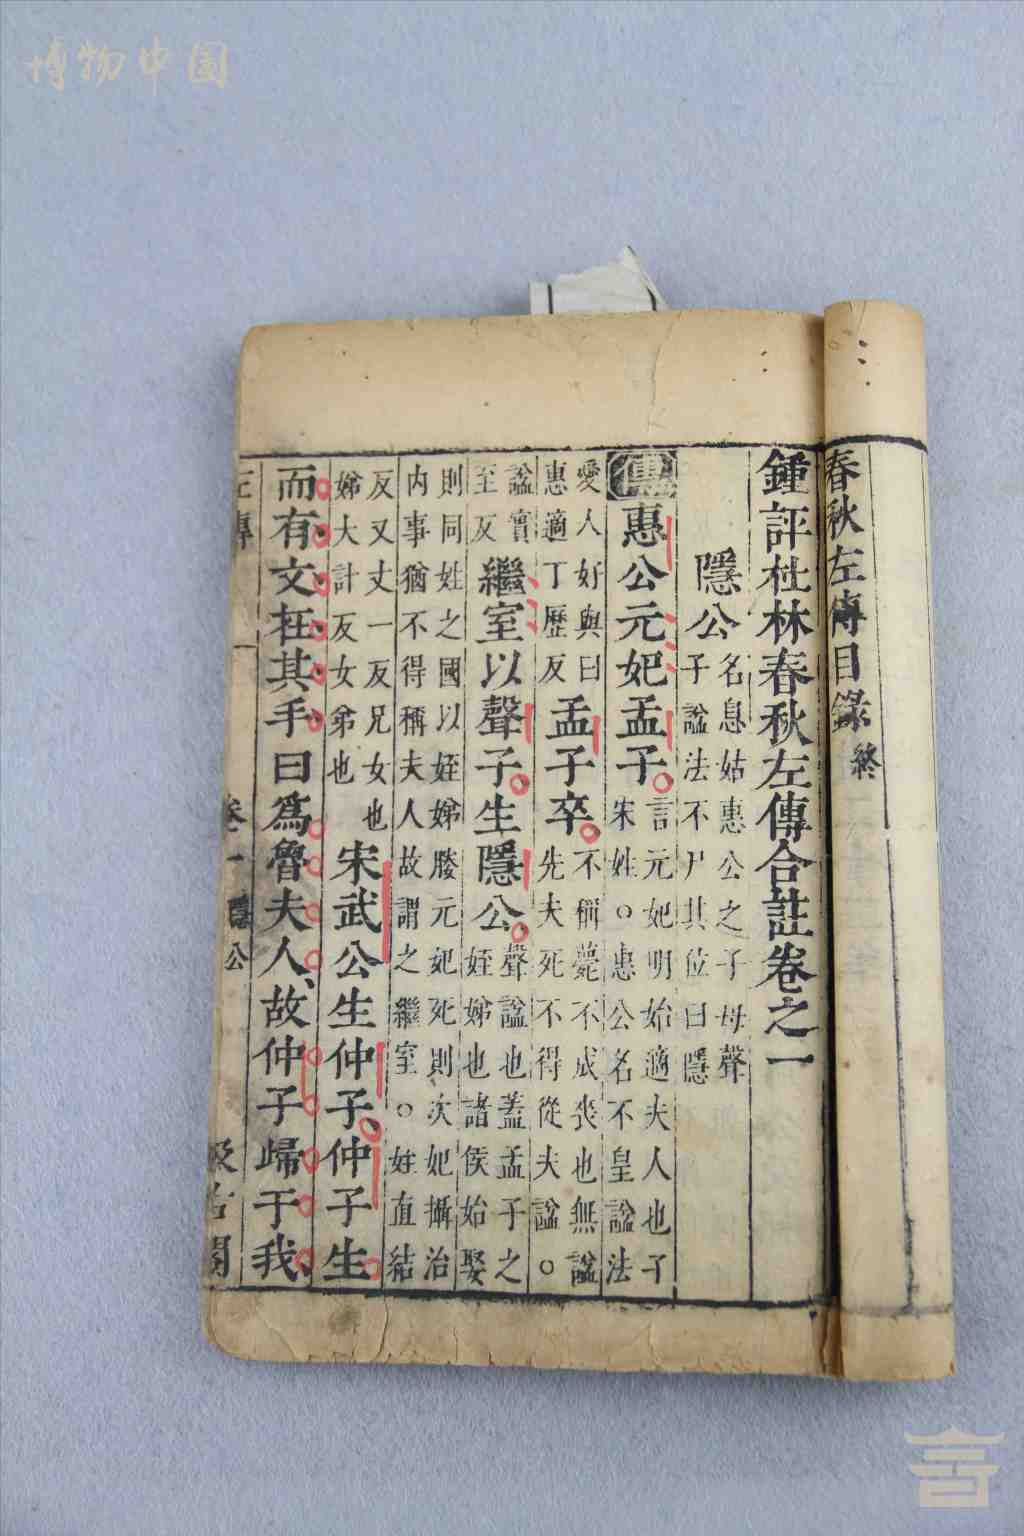 博物中国
春秋左傳目錄終
鍾評杜林春秋左傳合註卷之一
隱公名息姑惠公之子母聲
子諡法不尸其位曰隱
傳惠公元妃孟子。言元妃明始適夫人也子
宋姓。惠公名不皇諡法
愛人好與曰
惠適丁歷反
孟子卒。不稱薨不成喪也無諡
先夫死不得從夫諡。
諡實
至反
繼室以聲子。生隱公。聲諡也蓋孟子之
姪娣也諸侯始娶
則同姓之國以姪娣媵元妃死則次妃攝治
内事猶不得稱夫人故謂之繼室。姪直結
反又丈一反兄女也
娣大計反女弟也
宋武公生仲子、仲子生
而有文在其手曰爲魯夫人、故仲子歸于我、
左傳 卷一 隱公 汲古閣